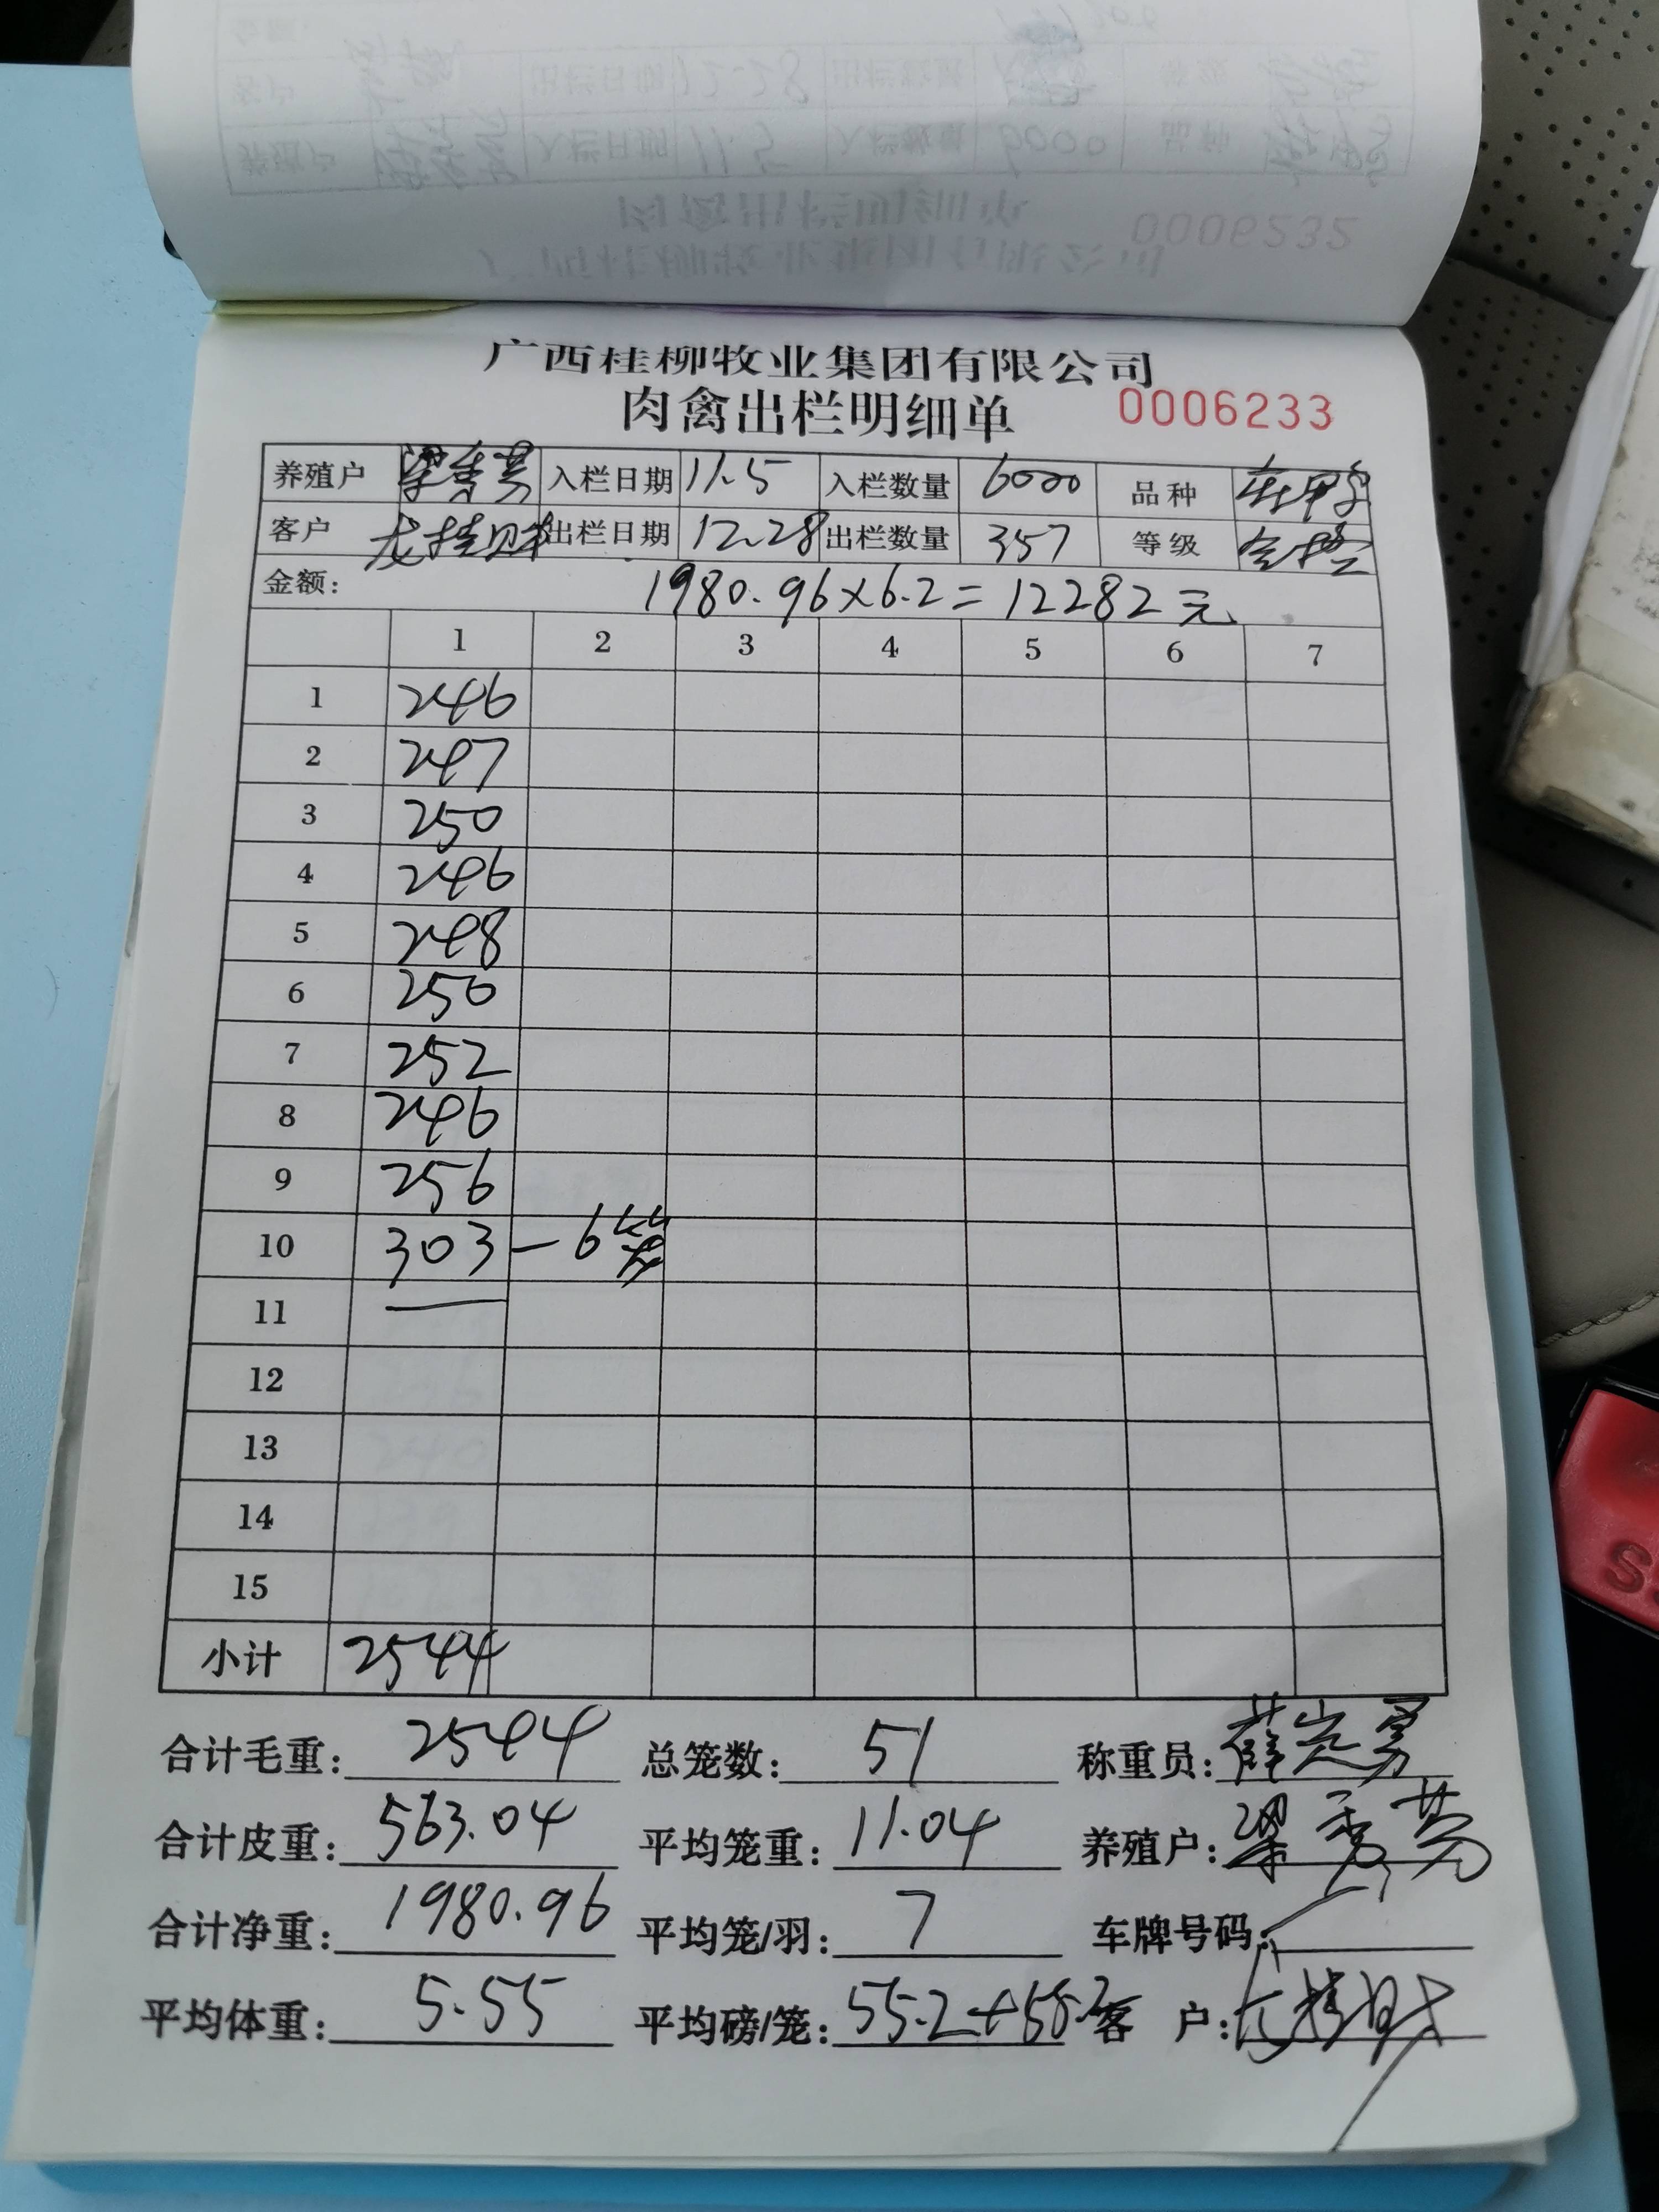 广西桂柳牧业集团有限公司
肉禽出栏明细单 0006233
养殖户 梁秀芬 入栏日期 11.5 入栏数量 6000 品种
客户 龙桂财 出栏日期 12.28 出栏数量 357 等级
金额: 1980.96×6.2=12282元
1 2 3 4 5 6 7
1 246
2 247
3 250
4 246
5 248
6 250
7 252
8 246
9 256
10 303 — 6笼
11
12
13
14
15
小计 2544
合计毛重: 2544 总笼数: 51 称重员: 薛定勇
合计皮重: 563.04 平均笼重: 11.04 养殖户: 梁秀芬
合计净重: 1980.96 平均笼/羽: 7 车牌号码:
平均体重: 5.55 平均磅/笼: 55.2+55.2 客 户: 龙桂财